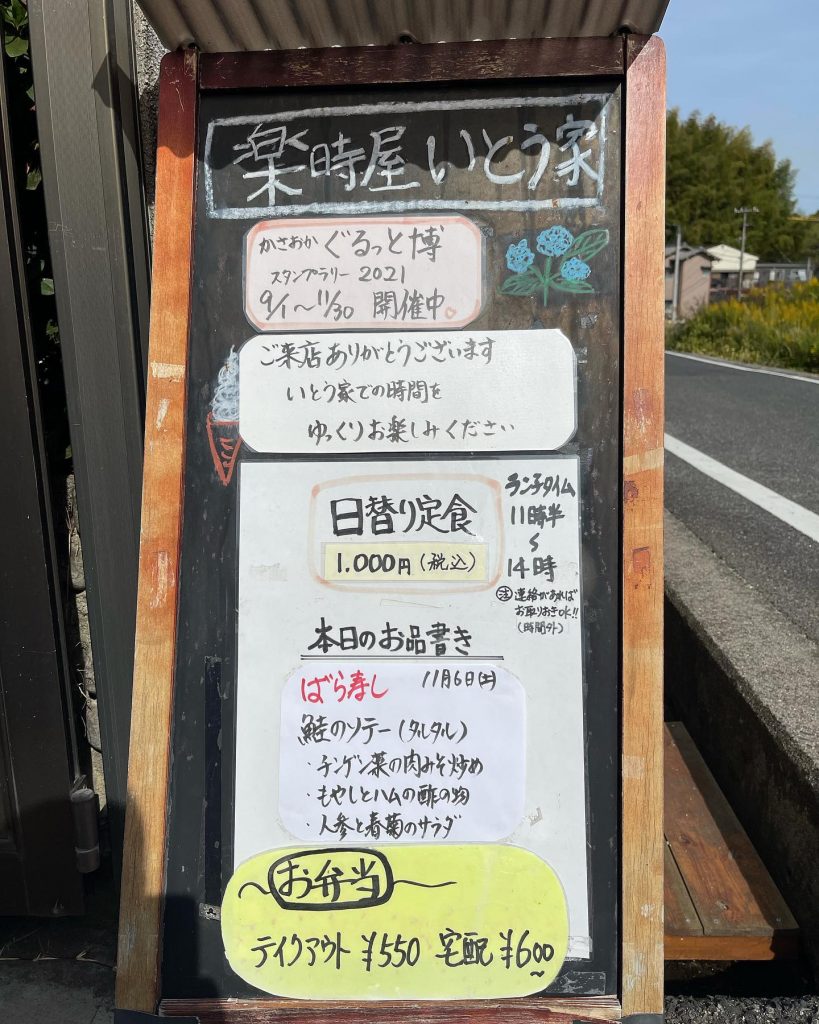 楽時屋 いとう家
かさおか ぐるっと博
スタンプラリー 2021
9/1〜11/30 開催中。
ご来店ありがとうございます
いとう家での時間を
ゆっくりお楽しみください
日替り定食
1.000円(税込)
ランチタイム
11時半
〜
14時
注 連絡があれば
お取りおきOK!!
(時間外)
本日のお品書き
ばら寿し 11月6日(土)
鮭のソテー(タルタル)
・チンゲン菜の肉みそ炒め
・もやしとハムの酢の物
・人参と春菊のサラダ
〜お弁当〜
テイクアウト ¥550 宅配 ¥600〜